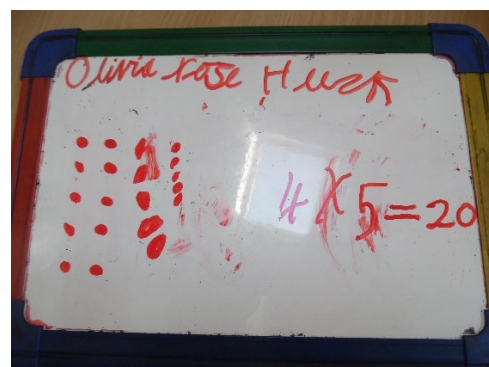 Olivia rose Huck
4 x 5 = 20